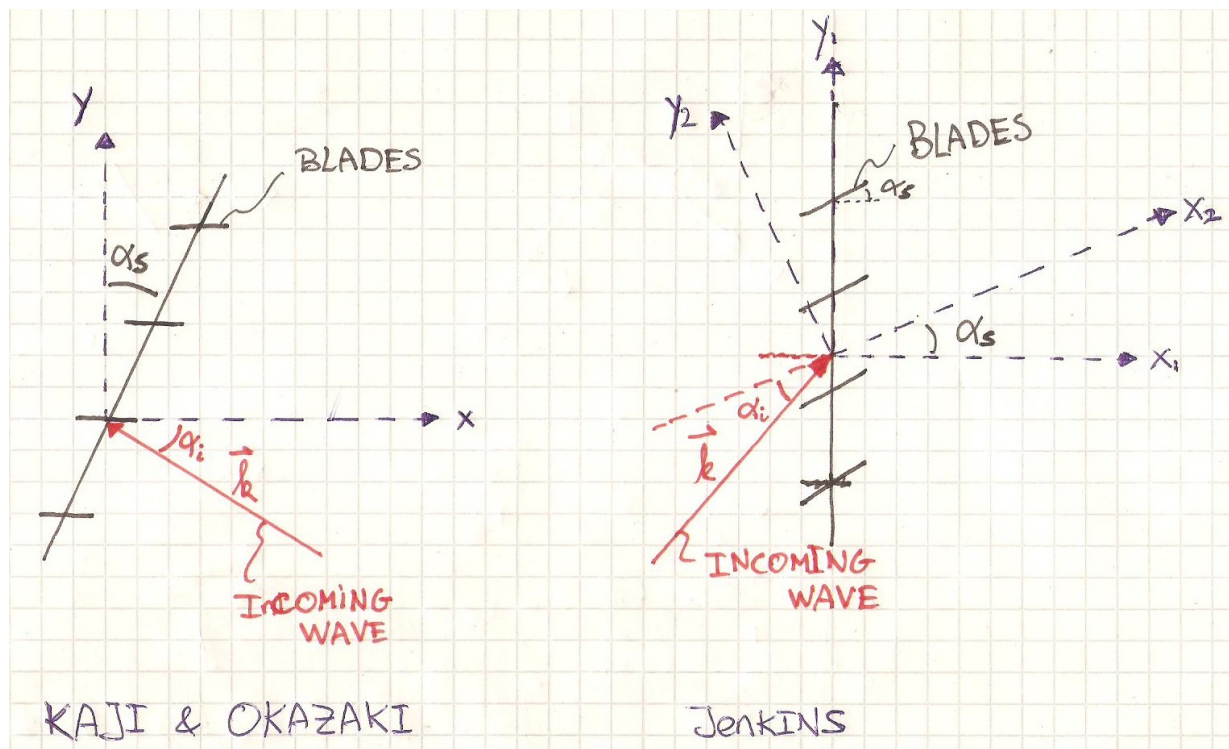 Y
BLADES
αs
x
αi
k
IncOMiNG
WAVE
KAJI & OKAZAKI
Y1
Y2
BLADES
αs
X2
αs
X1
αi
k
INCOMING
WAVE
JenKINS